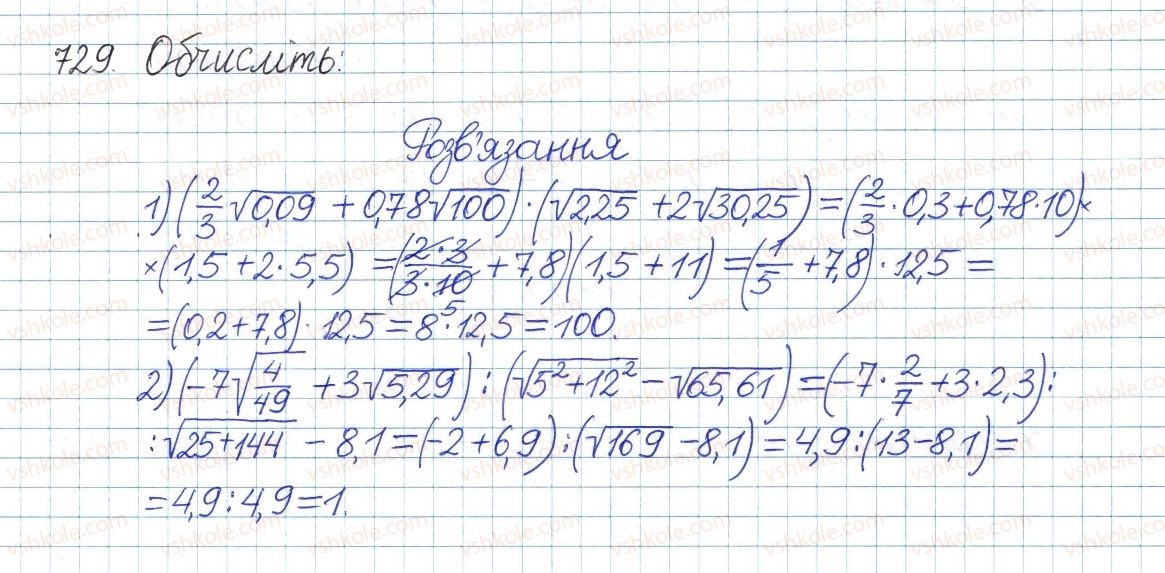 729. Обчисліть:
Розв'язання
1) (2/3 √0,09 + 0,78√100) · (√2,25 + 2√30,25) = (2/3 · 0,3 + 0,78 · 10) ×
× (1,5 + 2 · 5,5) = (2 · 3/3 · 10 + 7,8)(1,5 + 11) = (1/5 + 7,8) · 12,5 =
5
= (0,2 + 7,8) · 12,5 = 8 · 12,5 = 100.
2) (-7√4/49 + 3√5,29) : (√5²+12² - √65,61) = (-7 · 2/7 + 3 · 2,3) :
: √25+144 - 8,1 = (-2 + 6,9) : (√169 - 8,1) = 4,9 : (13 - 8,1) =
= 4,9 : 4,9 = 1.